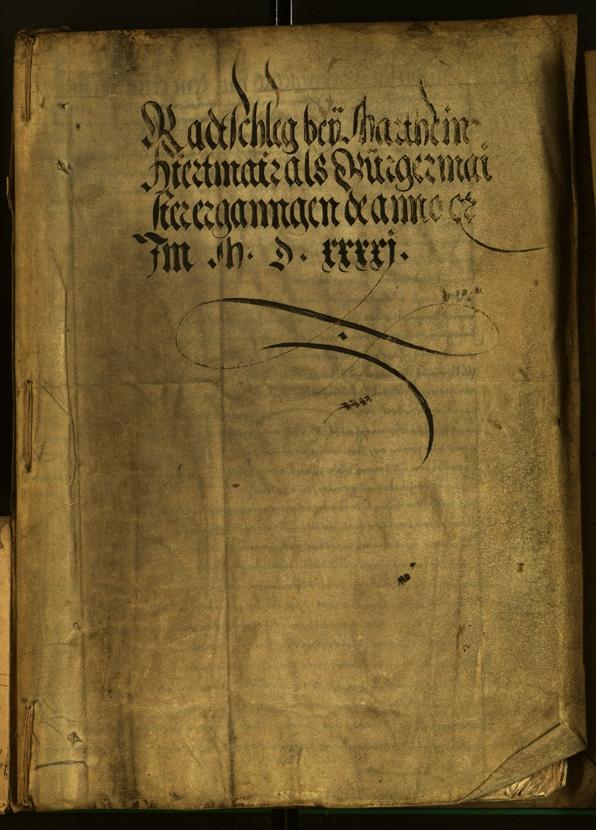 Radtschleg beÿ Marthein
Hiertmair als Bürgermai
ster erganngen de anno etc
Im M. D. xxxxj.